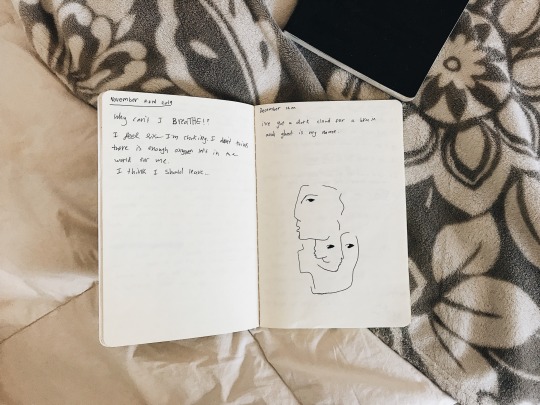 November 22nd 2019
Why can't I BREATHE!?
I feel like I'm choking. I don't think
there is enough oxygen left in the
world for me.
I think I should leave..
December
i've got a dark cloud for a brain
and ghost is my name.